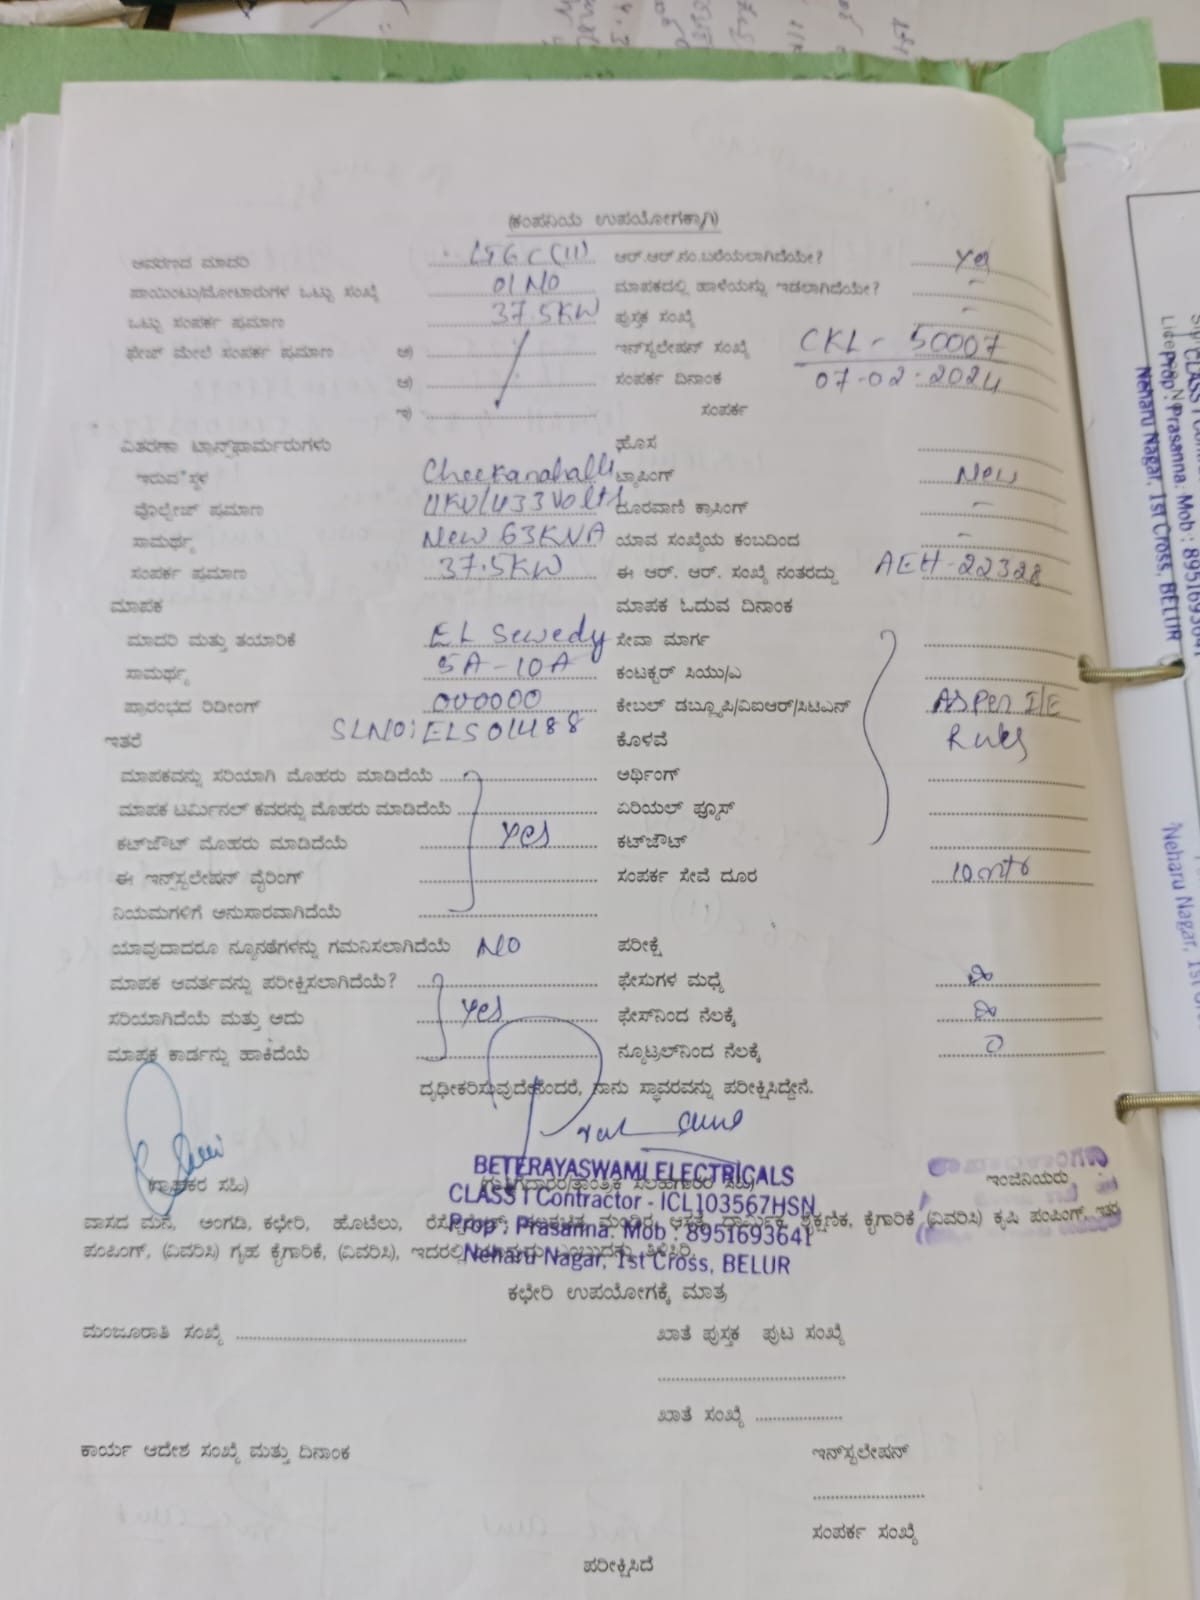 (ಕಂಪನಿಯ ಉಪಯೋಗಕ್ಕಾಗಿ)
ಆವರಣದ ಮಾದರಿ ಆರ್.ಆರ್.ನಂ.ಬರೆಯಲಾಗಿದೆಯೇ? Yes
ಪಾಯಿಂಟು/ಮೋಟಾರುಗಳ ಒಟ್ಟು ಸಂಖ್ಯೆ 01 NO ಮಾಪಕದಲ್ಲಿ ಹಾಳೆಯನ್ನು ಇಡಲಾಗಿದೆಯೇ? -
ಒಟ್ಟು ಸಂಪರ್ಕ ಪ್ರಮಾಣ 37.5KW ಪುಸ್ತಕ ಸಂಖ್ಯೆ -
ಫೇಜ್ ಮೇಲೆ ಸಂಪರ್ಕ ಪ್ರಮಾಣ ಅ) ಇನ್‌ಸ್ಟಲೇಷನ್ ಸಂಖ್ಯೆ CKL - 50007
ಆ) ಸಂಪರ್ಕ ದಿನಾಂಕ 07-02-2024
ಇ) ಸಂಪರ್ಕ
ವಿತರಣಾ ಟ್ರಾನ್ಸ್‌ಫಾರ್ಮರುಗಳು ಹೊಸ
ಇರುವ ಸ್ಥಳ Cheekanahalli ಟ್ಯಾಪಿಂಗ್ New
ವೊಲ್ಟೇಜ್ ಪ್ರಮಾಣ 11KV/433 Volts ದೂರವಾಣಿ ಕ್ರಾಸಿಂಗ್ -
ಸಾಮರ್ಥ್ಯ New 63KVA ಯಾವ ಸಂಖ್ಯೆಯ ಕಂಬದಿಂದ -
ಸಂಪರ್ಕ ಪ್ರಮಾಣ 37.5KW ಈ ಆರ್. ಆರ್. ಸಂಖ್ಯೆ ನಂತರದ್ದು AEH-22328
ಮಾಪಕ ಮಾಪಕ ಓದುವ ದಿನಾಂಕ
ಮಾದರಿ ಮತ್ತು ತಯಾರಿಕೆ EL Sewedy ಸೇವಾ ಮಾರ್ಗ
ಸಾಮರ್ಥ್ಯ 5A-10A ಕಂಟಕ್ಟರ್ ಸಿಯು/ಎ
ಪ್ರಾರಂಭದ ರಿಡೀಂಗ್ 000000 ಕೇಬಲ್ ಡಬ್ಲ್ಯೂಪಿ/ವಿಐಆರ್/ಸಿಟಿಎನ್ As per I/E
ಇತರೆ SLNO: ELS01488 ಕೊಳವೆ Rules
ಮಾಪಕವನ್ನು ಸರಿಯಾಗಿ ಮೊಹರು ಮಾಡಿದೆಯೆ ಅರ್ಥಿಂಗ್
ಮಾಪಕ ಟರ್ಮಿನಲ್ ಕವರನ್ನು ಮೊಹರು ಮಾಡಿದೆಯೆ ಏರಿಯಲ್ ಫ್ಯೂಸ್
ಕಟ್‌ಜೌಟ್ ಮೊಹರು ಮಾಡಿದೆಯೆ Yes ಕಟ್‌ಜೌಟ್
ಈ ಇನ್ಸ್‌ಸ್ಟಲೇಷನ್ ವೈರಿಂಗ್ ಸಂಪರ್ಕ ಸೇವೆ ದೂರ 10 mtr
ನಿಯಮಗಳಿಗೆ ಅನುಸಾರವಾಗಿದೆಯೆ
ಯಾವುದಾದರೂ ನ್ಯೂನತೆಗಳನ್ನು ಗಮನಿಸಲಾಗಿದೆಯೆ NO ಪರೀಕ್ಷೆ
ಮಾಪಕ ಆವರ್ತವನ್ನು ಪರೀಕ್ಷಿಸಲಾಗಿದೆಯೆ? ಫೇಸುಗಳ ಮಧ್ಯೆ
ಸರಿಯಾಗಿದೆಯೆ ಮತ್ತು ಅದು Yes ಫೇಸ್‌ನಿಂದ ನೆಲಕ್ಕೆ
ಮಾಪಕ ಕಾರ್ಡನ್ನು ಹಾಕಿದೆಯೆ ನ್ಯೂಟ್ರಲ್‌ನಿಂದ ನೆಲಕ್ಕೆ 0
ದೃಢೀಕರಿಸುವುದೇನೆಂದರೆ, ನಾನು ಸ್ಥಾವರವನ್ನು ಪರೀಕ್ಷಿಸಿದ್ದೇನೆ.
BETERAYASWAMI ELECTRICALS
(ಗ್ರಾಹಕರ ಸಹಿ) ಇಂಜಿನಿಯರು
CLASS I Contractor - ICL103567HSN
ವಾಸದ ಮನೆ, ಅಂಗಡಿ, ಕಛೇರಿ, ಹೊಟೆಲು, ಶೈಕ್ಷಣಿಕ, ಕೈಗಾರಿಕೆ (ವಿವರಿಸಿ) ಕೃಷಿ ಪಂಪಿಂಗ್, ಇತರ
Prop : Prasanna. Mob : 8951693641
ಪಂಪಿಂಗ್, (ವಿವರಿಸಿ) ಗೃಹ ಕೈಗಾರಿಕೆ, (ವಿವರಿಸಿ),
Neharu Nagar, 1st Cross, BELUR
ಕಛೇರಿ ಉಪಯೋಗಕ್ಕೆ ಮಾತ್ರ
ಮಂಜೂರಾತಿ ಸಂಖ್ಯೆ ಖಾತೆ ಪುಸ್ತಕ ಪುಟ ಸಂಖ್ಯೆ
ಖಾತೆ ಸಂಖ್ಯೆ
ಕಾರ್ಯ ಆದೇಶ ಸಂಖ್ಯೆ ಮತ್ತು ದಿನಾಂಕ ಇನ್‌ಸ್ಟಲೇಷನ್
ಸಂಪರ್ಕ ಸಂಖ್ಯೆ
ಪರೀಕ್ಷಿಸಿದೆ
Prop : Prasanna. Mob : 8951693641
Neharu Nagar, 1st Cross, BELUR